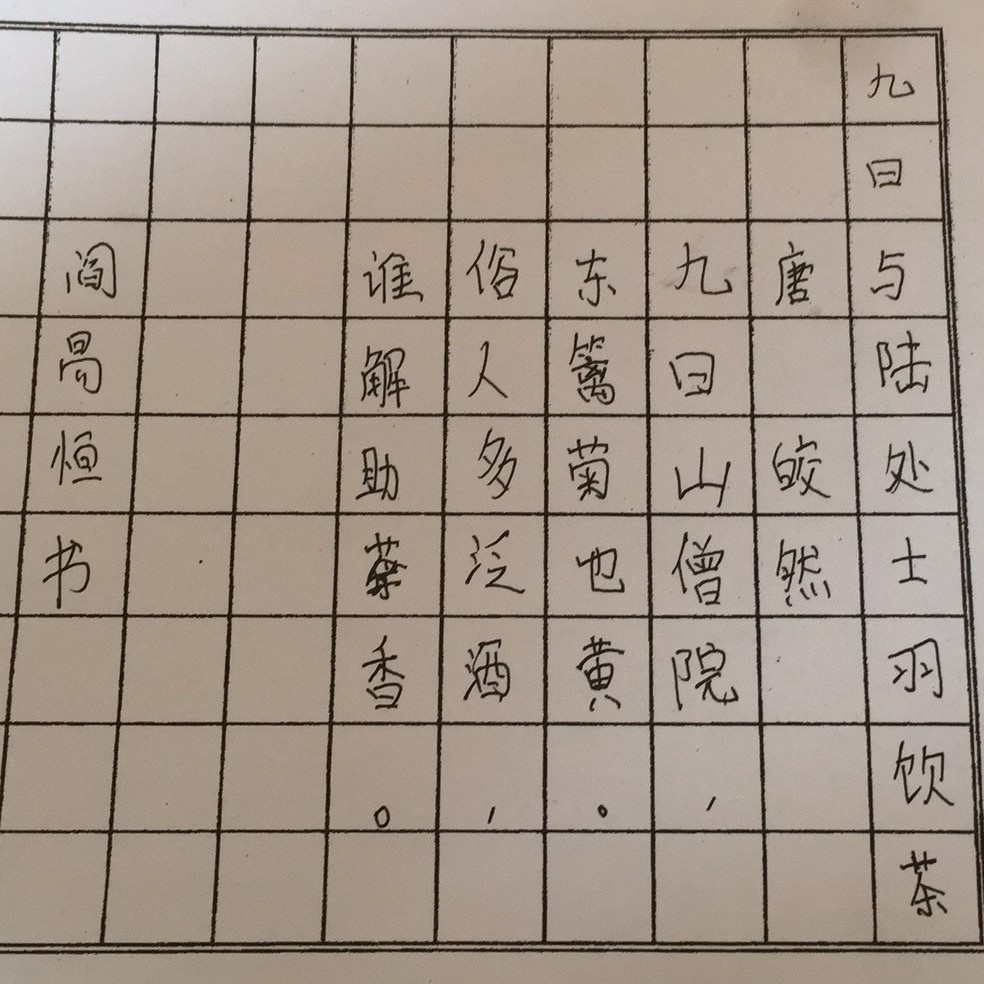 九日与陆处士羽饮茶
唐 皎然
九日山僧院，
东篱菊也黄。
俗人多泛酒，
谁解助茶香。
阎昌恒书